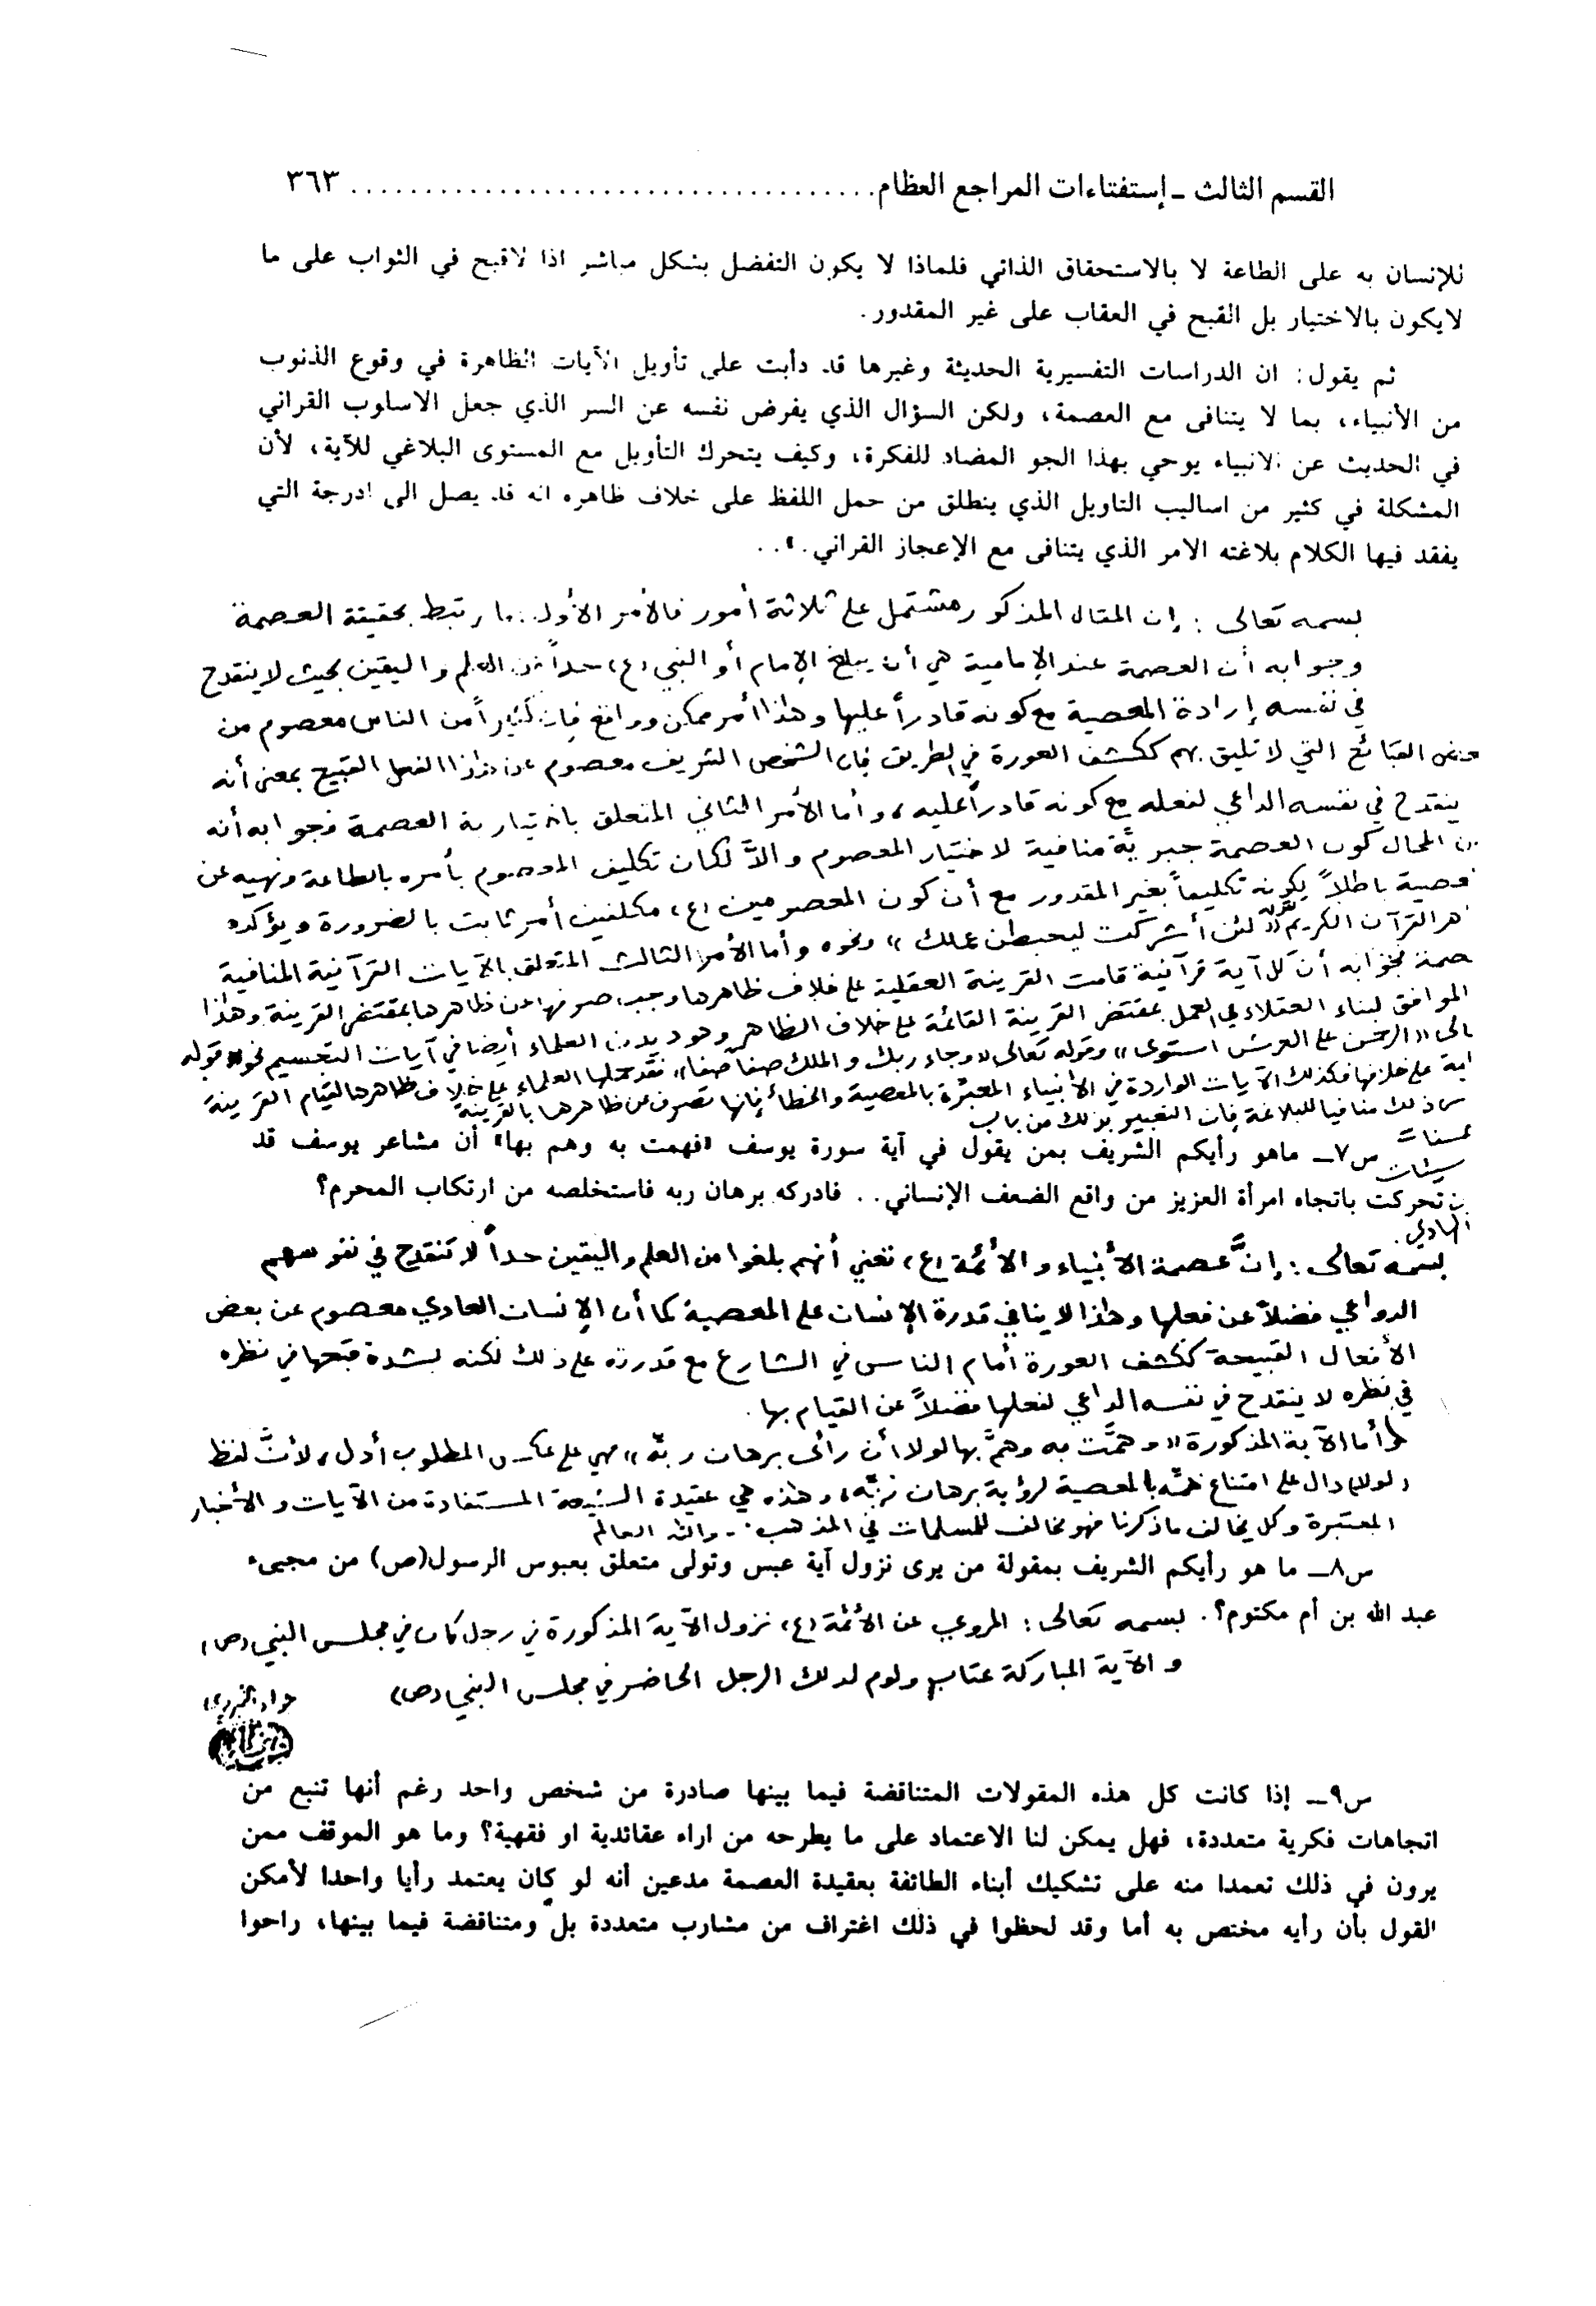 القسم الثالث ـ إستفتاءات المراجع العظام .................................... ٣٦٣
للإنسان به على الطاعة لا بالاستحقاق الذاتي فلماذا لا يكون التفضل بشكل مباشر اذا لاقبح في الثواب على ما
لايكون بالاختيار بل القبح في العقاب على غير المقدور.
ثم يقول: ان الدراسات التفسيرية الحديثة وغيرها قد دأبت على تأويل الآيات الظاهرة في وقوع الذنوب
من الأنبياء، بما لا يتنافى مع العصمة، ولكن السؤال الذي يفرض نفسه عن السر الذي جعل الاسلوب القراني
في الحديث عن الانبياء يوحي بهذا الجو المضاد للفكرة، وكيف يتحرك التأويل مع المستوى البلاغي للآية، لأن
المشكلة في كثير من اساليب التاويل الذي ينطلق من حمل اللفظ على خلاف ظاهره انه قد يصل الى ادرجة التي
يفقد فيها الكلام بلاغته الامر الذي يتنافى مع الإعجاز القراني.»..
بسمه تعالى : إن المقال المذكور مشتمل على ثلاثة أمور فالأمر الأول ما رتبط بحقيقة العصمة
وجوابه أن العصمة عند الإمامية هي أن يبلغ الإمام أو النبي (ع) حداً من العلم واليقين بحيث لا ينقدح
في نفسه إرادة المعصية مع كونه قادراً عليها وهذا أمر ممكن وواقع فإن كثيراً من الناس معصوم من
بعض القبائح التي لا تليق بهم ككشف العورة في الطريق فإن الشخص الشريف معصوم عن هذا الفعل القبيح بمعنى أنه
ينقدح في نفسه الداعي لفعله مع كونه قادراً عليه، وأما الأمر الثاني المتعلق باختيارية العصمة فجوابه أنه
من المحال كون العصمة جبرية منافية لاختيار المعصوم والاَّ لكان تكليف المعصوم بأمره بالطاعة ونهيه عن
عصية باطلاً لكونه تكليفاً بغير المقدور مع أن كون المعصومين (ع) مكلفين أمر ثابت بالضرورة ويؤكده
هر القرآن الكريم «لئن أشركت ليحبطن عملك» ونحوه وأما الأمر الثالث المتعلق بالآيات القرآنية المنافية
صمة فجوابه أن كل آية قرآنية قامت القرينة العقلية على خلاف ظاهرها وجب صرفها عن ظاهرها بمقتضى القرينة وهذا
الموافق لبناء العقلاء في العمل بمقتضى القرينة القائمة على خلاف الظاهر وهو ديدن العلماء أيضا في آيات التجسيم نحو قوله
الى «الرحمن على العرش استوى» وقوله تعالى «وجاء ربك والملك صفاً صفا» فقد حملها العلماء على خلاف ظاهرها لقيام القرينة
على خلافها فكذلك الآيات الواردة في الأنبياء المعبّرة بالمعصية والخطأ فإنها تصرف عن ظاهرها بالقرينة
س ذلك منافيا للبلاغة فإن التعبير بذلك من باب
حسنات
سيئات
س٧ـ ماهو رأيكم الشريف بمن يقول في آية سورة يوسف «فهمت به وهم بها» أن مشاعر يوسف قد
تحركت باتجاه امرأة العزيز من واقع الضعف الإنساني.. فادركه برهان ربه فاستخلصه من ارتكاب المحرم؟
بسمه تعالى : إنَّ عصمة الأنبياء والأئمة (ع) تعني أنهم بلغوا من العلم واليقين حداً لا تنقدح في نفوسهم
الدواعي فضلاً عن فعلها وهذا لا ينافي قدرة الإنسان على المعصية كما أن الإنسان العادي معصوم عن بعض
الأفعال القبيحة ككشف العورة أمام الناس في الشارع مع قدرته على ذلك لكنه لشدة قبحها في نظره
في نظره لا ينقدح في نفسه الداعي لفعلها فضلاً عن القيام بها.
وأما الآية المذكورة «وهمَّت به وهمَّ بها لولا أن رأى برهان ربّه» فهي على عكس المطلوب أدل، لأنَّ لفظ
(لولا) دال على امتناع همّه بالمعصية لرؤية برهان ربّه، وهذه هي عقيدة الشيعة المستفادة من الآيات والأخبار
المعتبرة وكل يخالف ما ذكرنا فهو مخالف للمسلمات في المذهب. ـ والله العالم
س٨ـ ما هو رأيكم الشريف بمقولة من يرى نزول آية عبس وتولى متعلق بعبوس الرسول(ص) من مجيىء
عبد الله بن أم مكتوم؟. بسمه تعالى : المروي عن الأئمة (ع) نزول الآية المذكورة في رجل كان في مجلس النبي (ص)
و الآية المباركة عتاب ولوم لذلك الرجل الحاضر في مجلس النبي (ص)
جواد التبريزي
س٩ـ إذا كانت كل هذه المقولات المتناقضة فيما بينها صادرة من شخص واحد رغم أنها تنبع من
اتجاهات فكرية متعددة، فهل يمكن لنا الاعتماد على ما يطرحه من اراء عقائدية او فقهية؟ وما هو الموقف ممن
يرون في ذلك تعمدا منه على تشكيك أبناء الطائفة بعقيدة العصمة مدعين أنه لو كان يعتمد رأيا واحدا لأمكن
القول بأن رأيه مختص به أما وقد لحظوا في ذلك اغتراف من مشارب متعددة بل ومتناقضة فيما بينها، راحوا